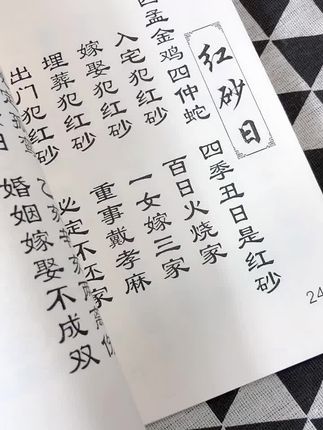 红砂日
四孟金鸡四仲蛇
四季丑日是红砂
入宅犯红砂
百日火烧家
嫁娶犯红砂
一女嫁三家
埋葬犯红砂
重事戴孝麻
出门犯红砂
必定不还家
婚姻嫁娶不成双
24